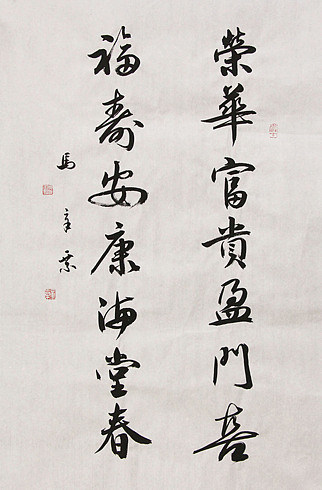 榮華富貴盈門喜
福壽安康滿堂春
馬